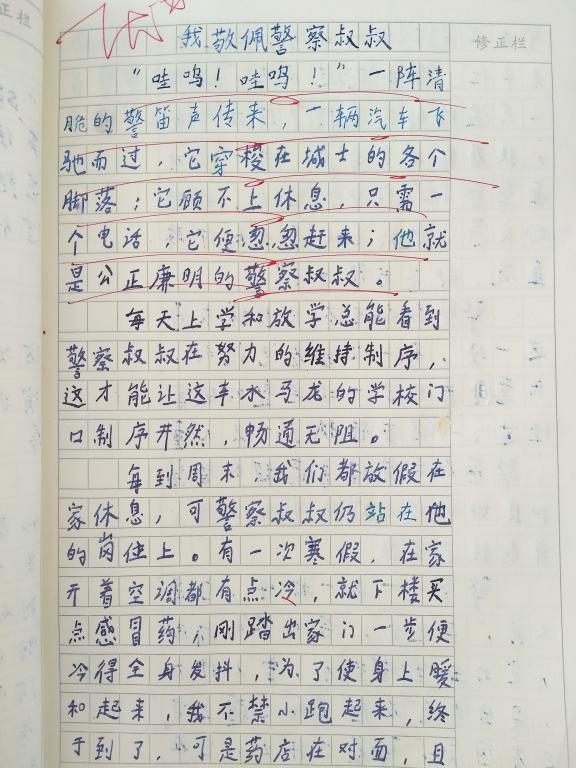 正栏
我敬佩警察叔叔
修正栏
“哇呜！哇呜！”一阵清
脆的警笛声传来，一辆汽车飞
驰而过，它穿梭在城士的各个
脚落；它顾不上休息，只需一
个电话，它便忽忽赶来；他就
是公正廉明的警察叔叔。
每天上学和放学总能看到
警察叔叔在努力的维持制序，
这才能让这车水马龙的学校门
口制序井然，畅通无阻。
每到周末，我们都放假在
家休息，可警察叔叔仍站在他
的岗位上。有一次寒假，在家
开着空调都有点冷，就下楼买
点感冒药，刚踏出家门一步便
冷得全身发抖，为了使身上暖
和起来，我不禁小跑起来，终
于到了，可是药店在对面，且